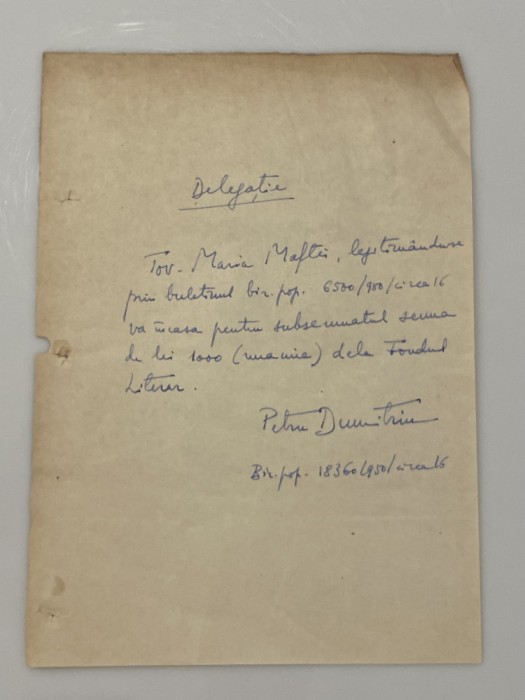 Delegație
Tov. Maria Maftei, legitimându-se
prin buletinul bir. pop. 6500/950/circa 16
va încasa pentru subsemnatul suma
de lei 1000 (una mie) dela Fondul
Literar.
Petru Dumitriu
Bir. pop. 18360/950/circa 16